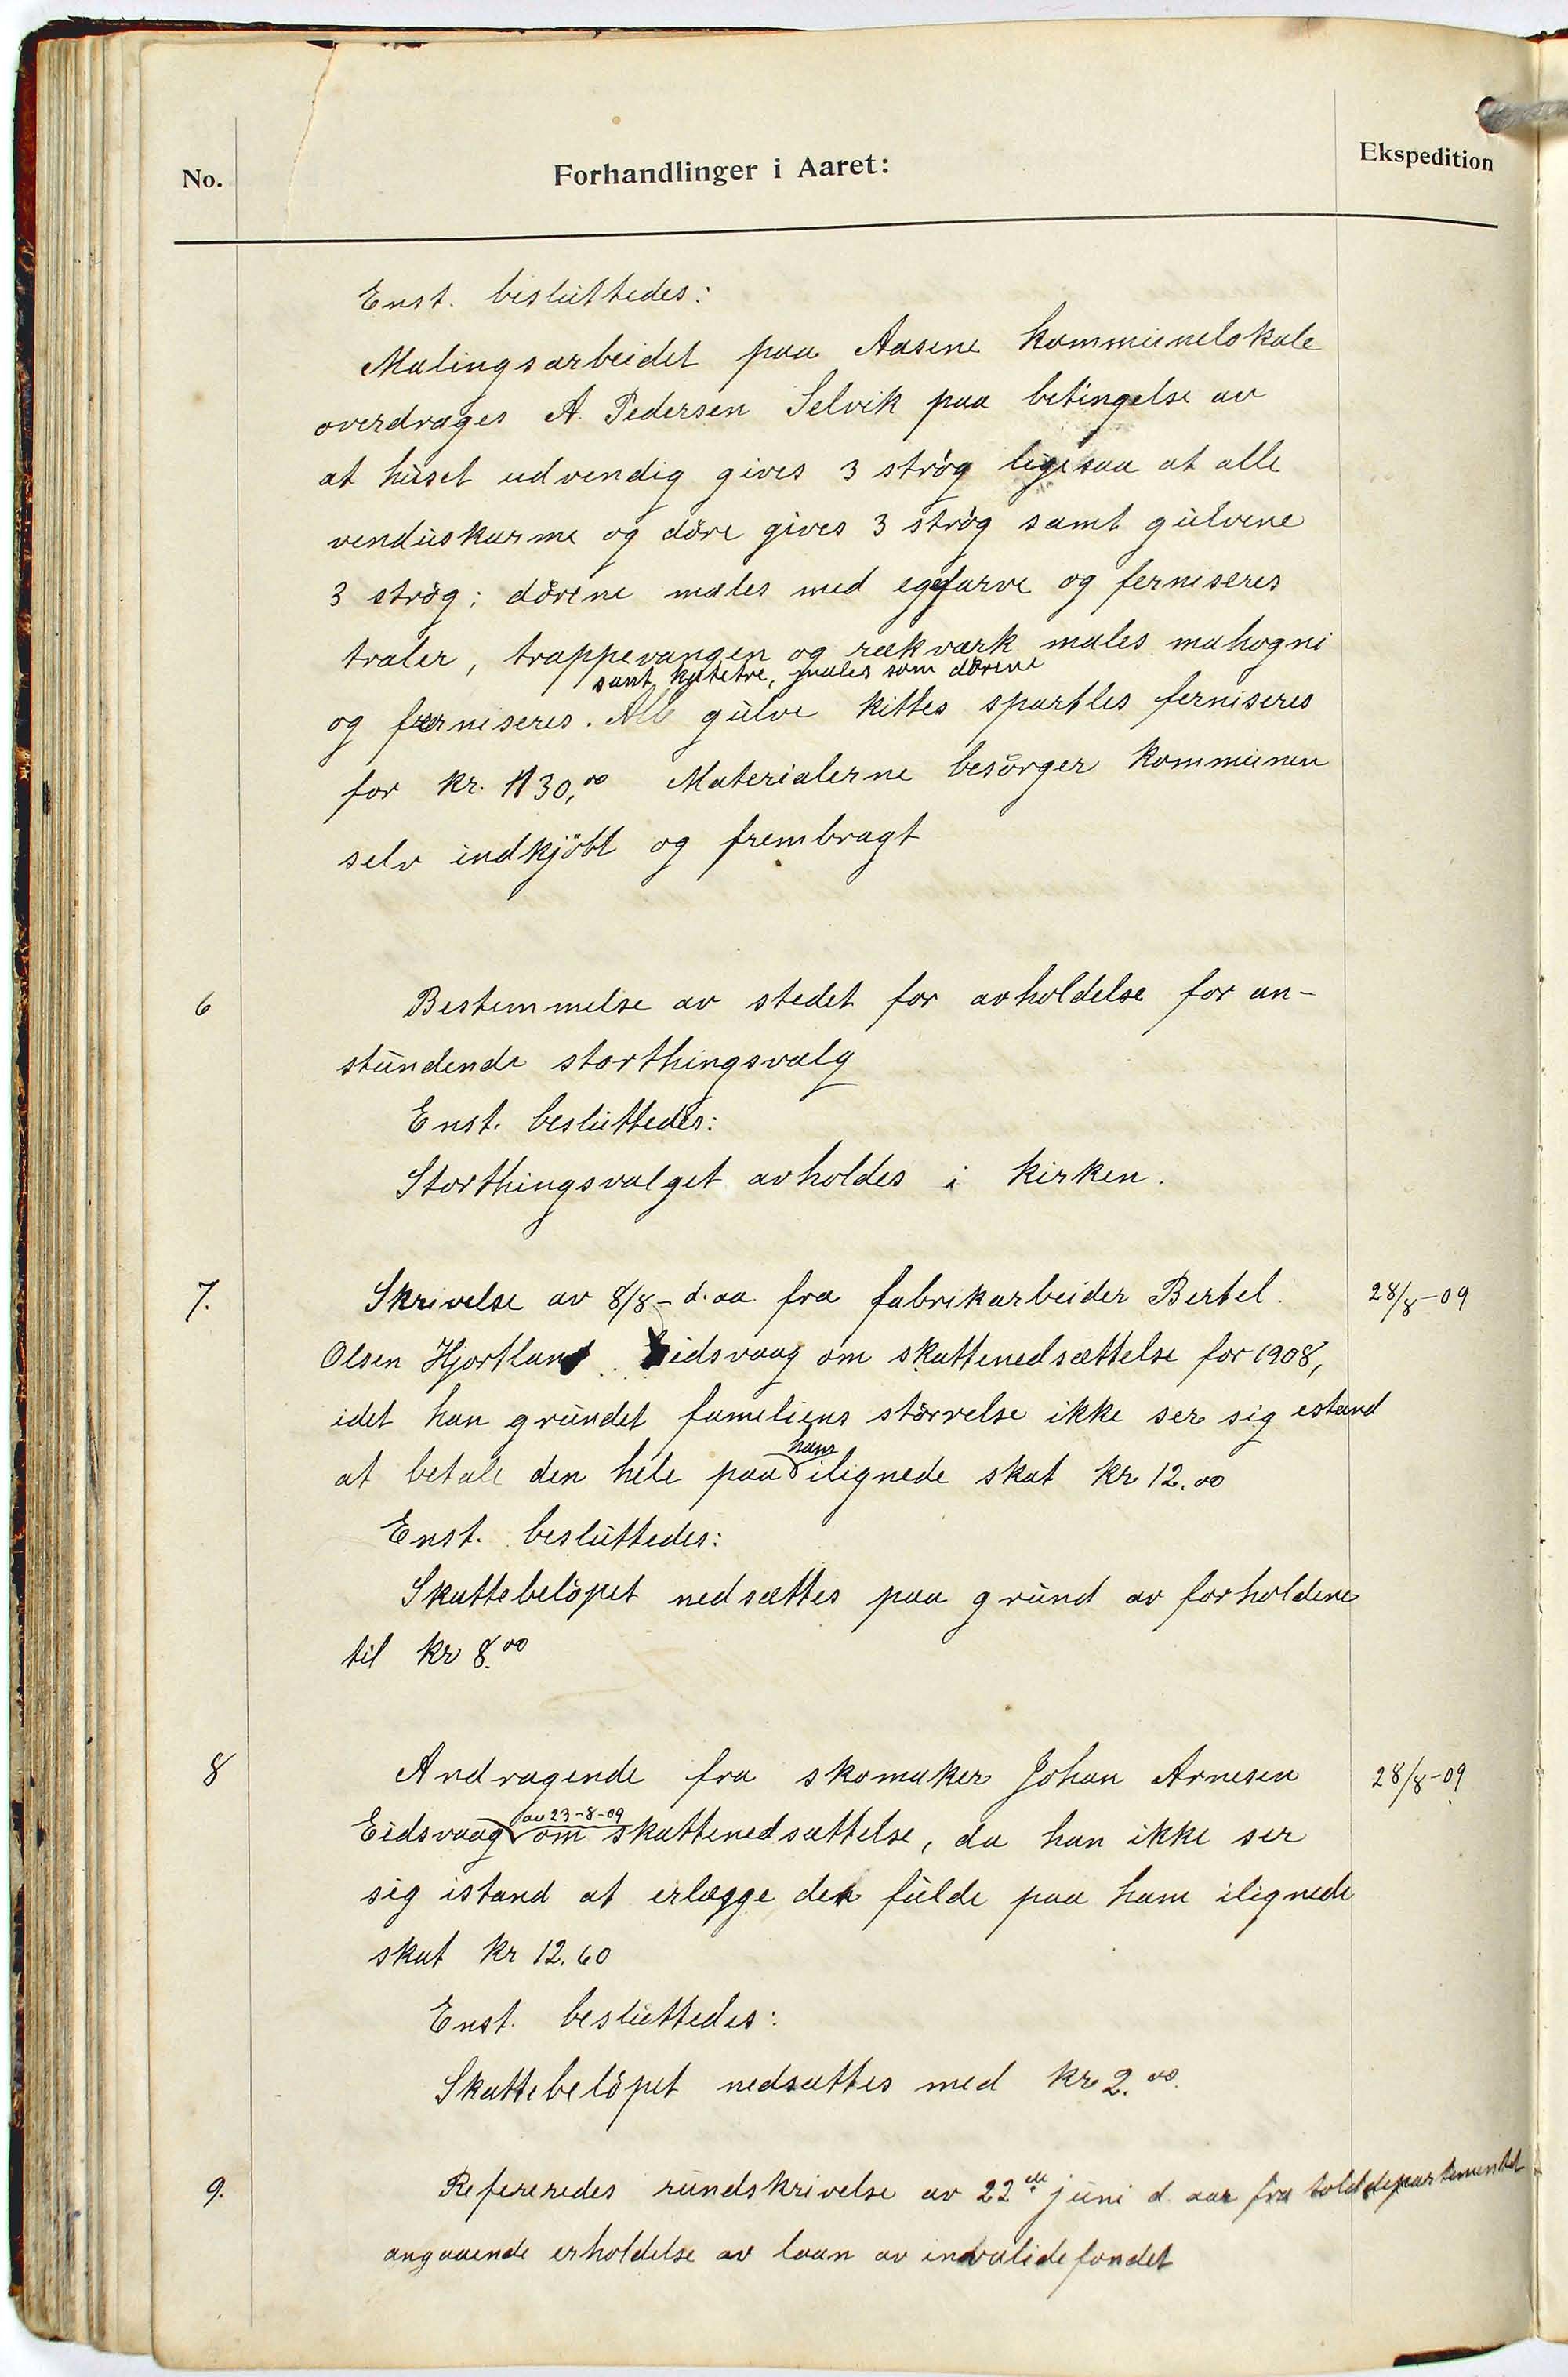 No.
Forhandlinger i Aaret:
Ekspedition
Enst. besluttedes:
Malingsarbeidet paa Aasene kommunelokale
overdrages A. Pedersen Selvik paa betingelse av
at huset udvendig gives 3 strøg ligesaa at alle
venduskarme og døre gives 3 strøg samt gulvene
3 strøg; dørene males med egefarve og ferniseres
traler, trappevangen og rækværk males mahogni
samt males som dørene
og ferniseres. Alle gulve kittes spartles ferniseres
for kr. 130,00 Materialerne besørger kommunen
selv indkjøbt og frembragt
6 Bestemmelse av stedet for avholdelse for an-
stundende storthingsvalg
Enst. besluttedes:
Storthingsvalget avholdes i kirken.
7. Skrivelse av 8/8- d. aa. fra fabrikarbeider Bertel 28/8-09
Olsen Hjortland Eidsvaag om skattenedsættelse for 1908,
idet han grundet fameliens størrelse ikke ser sig estand
ham
at betale den hele paa ilignede skat kr 12.00
Enst. besluttedes:
Skattebeløpet nedsættes paa grund av forholdene
til kr 8.00
8 Andragende fra skomaker Johan Arnesen 28/8-09
av 23-8-09
Eidsvaag om skattenedsættelse, da han ikke ser
sig istand at erlægge den fulde paa ham ilignede
skat kr 12.60
Enst. besluttedes:
Skattebeløpet nedsættes med kr 2.00.
9. Refereredes rundskrivelse av 22de juni d. aar fra tolddepartementet
angaaende erholdelse av laan av invalidefondet